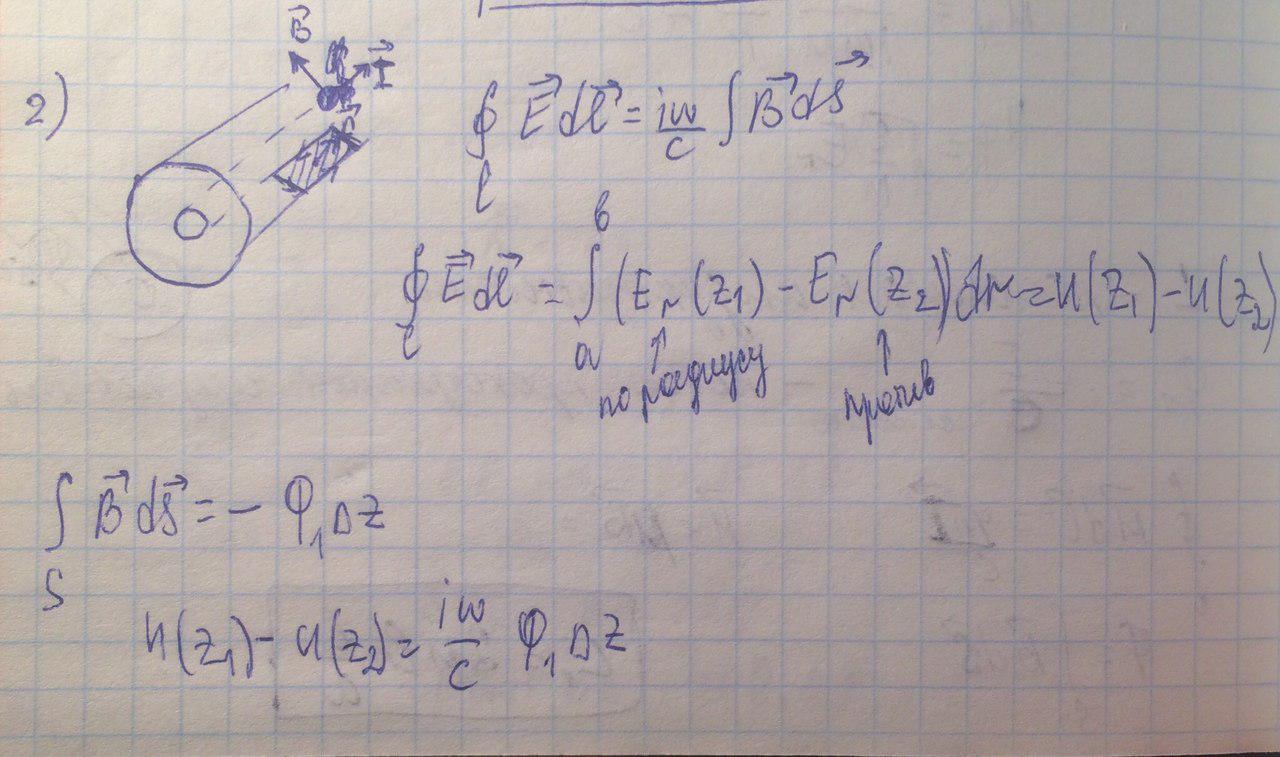 2)
B⃗ I⃗
∮_l E⃗ dl⃗ = iω/c ∫ B⃗ ds⃗
∮_l E⃗ dl⃗ = ∫_a^b (E_r(z₁) - E_r(z₂)) dr = U(z₁) - U(z₂)
по радиусу против
∫_S B⃗ ds⃗ = - Φ₁ Δz
U(z₁) - U(z₂) = iω/c Φ₁ Δz